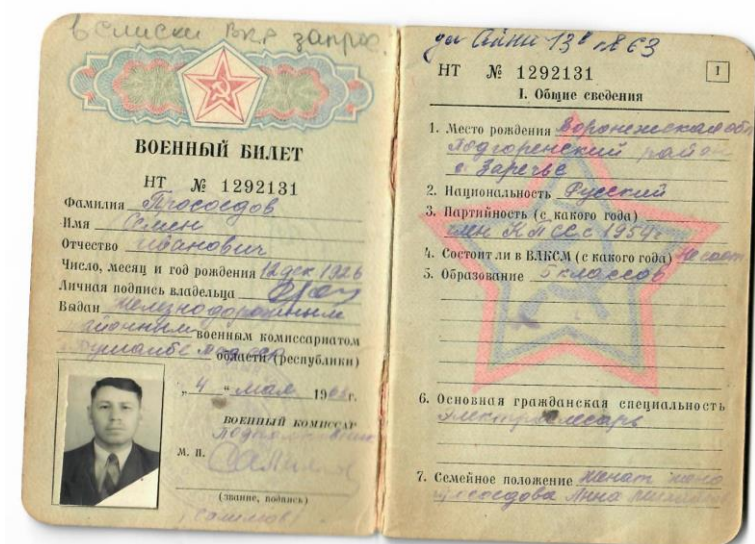 в списки ВКР запрос.
ВОЕННЫЙ БИЛЕТ
НТ № 1292131
Фамилия Просоедов
Имя Семен
Отчество Иванович
Число, месяц и год рождения 12 дек 1926
Личная подпись владельца
Выдан Железнодорожным
районным военным комиссариатом
Душанбе Тадж ССР области (республики)
„4“ мая 1965г.
ВОЕННЫЙ КОМИССАР
подполковник
М. П.
(звание, подпись)
Салимов
ул Айни 13 63
НТ № 1292131
1
I. Общие сведения
1. Место рождения Воронежская об
Подгоренский район
с. Заречье
2. Национальность Русский
3. Партийность (с какого года)
член КПСС с 1954г
4. Состоит ли в ВЛКСМ (с какого года) Не сост
5. Образование 5 классов
6. Основная гражданская специальность
Электрослесарь
7. Семейное положение Женат жена
Просоедова Анна